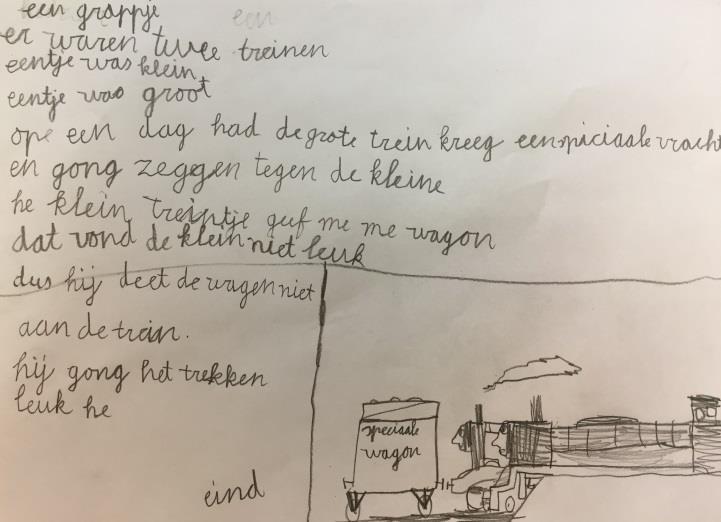 een grappje
een
er waren twee treinen
eentje was klein
eentje was groot
ope een dag had de grote trein kreeg een spiciaale vracht
en gong zeggen tegen de kleine
he klein treintje guf me me wagon
dat vond de klein niet leuk
dus hij deet de wagen niet
aan de train.
hij gong het trekken
leuk he
eind
speciaale
wagon